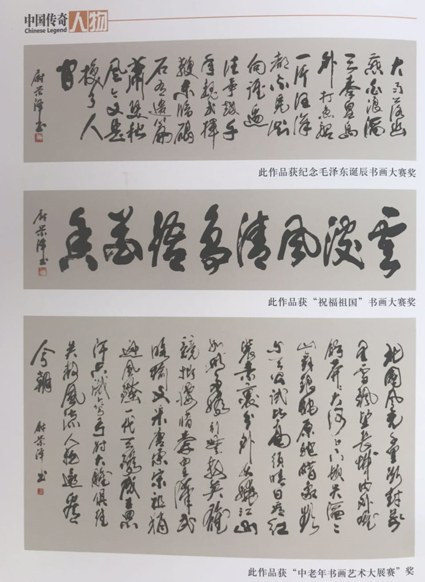 中国传奇 人物
Chinese Legend
大雨落幽
燕白浪滔
天秦皇岛
外打鱼船
一片汪洋
都不见知
向谁边
往事越千
年魏武挥
鞭东临碣
石有遗篇
萧瑟秋
风今又是
换了人
间
此作品获纪念毛泽东诞辰书画大赛奖
云淡风清鸟语花香
此作品获“祝福祖国”书画大赛奖
北国风光千里冰封万
里雪飘望长城内外惟
余莽莽大河上下顿失滔滔
山舞银蛇原驰蜡象欲
与天公试比高须晴日看红
装素裹分外妖娆江山
如此多娇引无数英雄
竞折腰惜秦皇汉武
略输文采唐宗宋祖稍
逊风骚一代天骄成吉思
汗只识弯弓射大雕俱往
矣数风流人物还看
今朝
此作品获“中老年书画艺术大展赛”奖